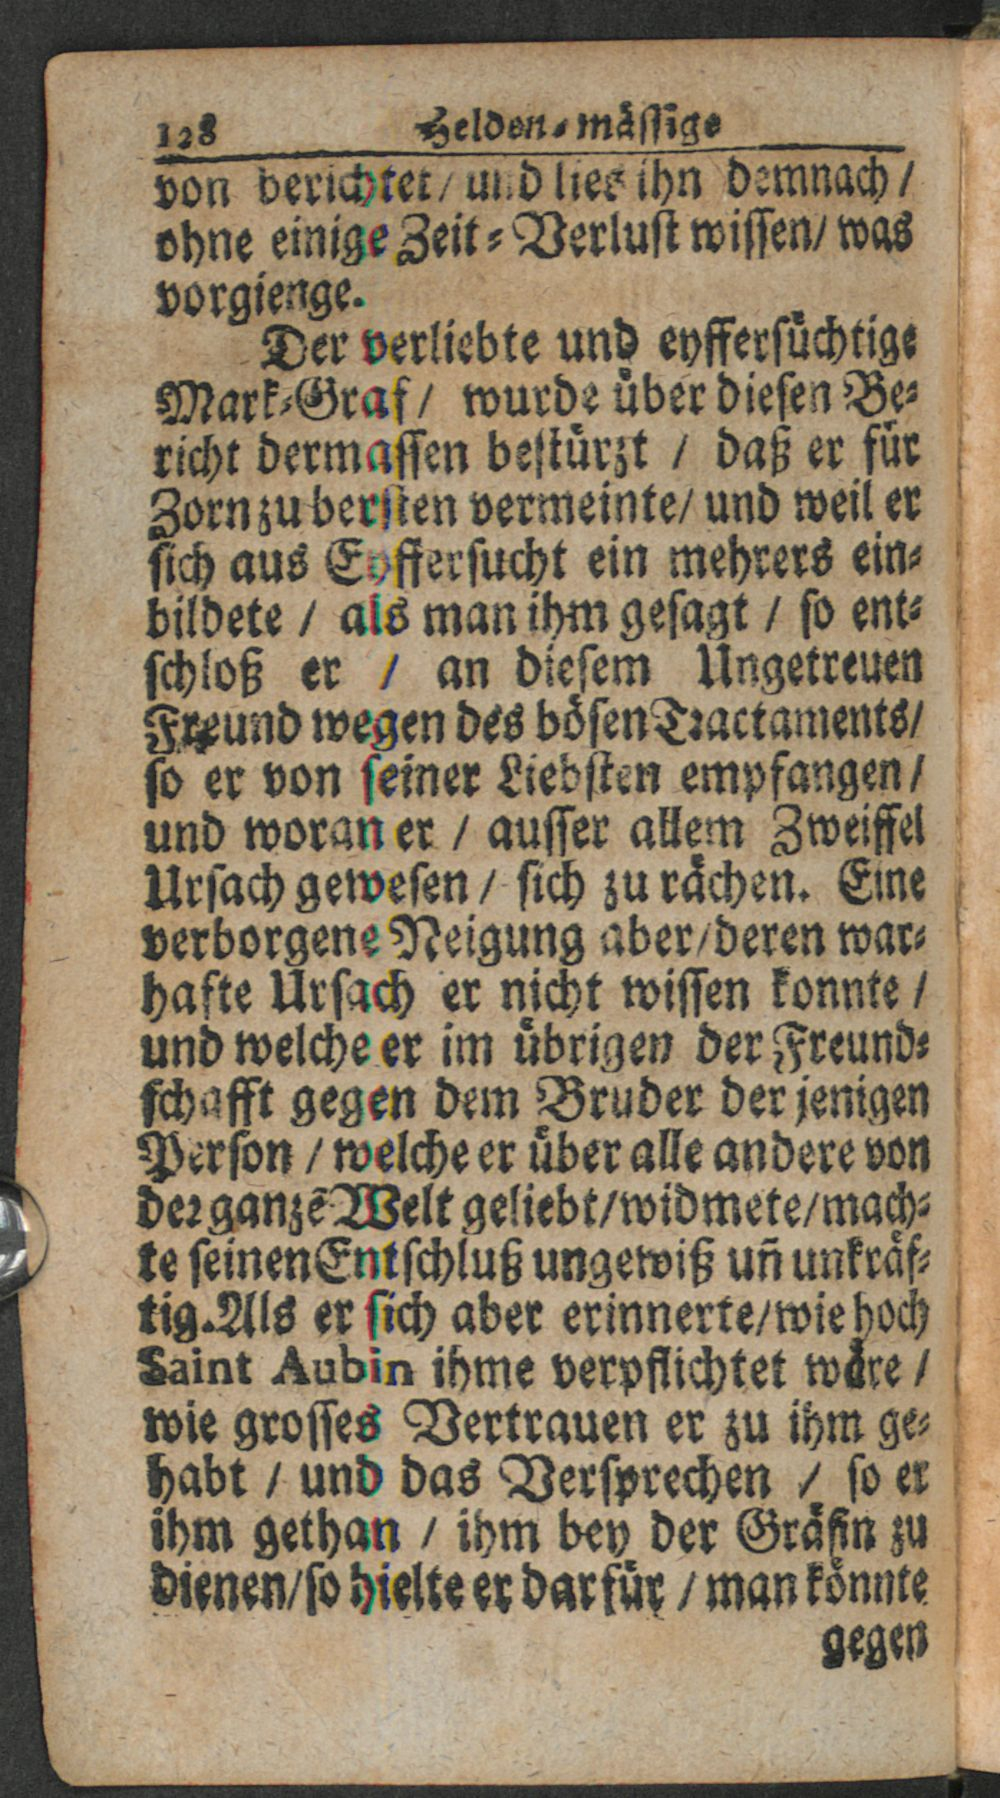 128 Helden-mässige
von berichtet / und lies ihn demnach /
ohne einige Zeit-Verlust wissen / was
vorgienge.
Der verliebte und eyffersüchtige
Mark-Graf / wurde über diesen Be-
richt dermassen bestürzt / daß er für
Zorn zu bersten vermeinte / und weil er
sich aus Eyffersucht ein mehrers ein-
bildete / als man ihm gesagt / so ent-
schloß er / an diesem Ungetreuen
Freund wegen des bösen Tractaments /
so er von seiner Liebsten empfangen /
und woran er / ausser allem Zweiffel
Ursach gewesen / sich zu rächen. Eine
verborgene Neigung aber / deren war-
hafte Ursach er nicht wissen konnte /
und welche er im übrigen der Freund-
schafft gegen dem Bruder der jenigen
Person / welche er über alle andere von
der ganzē Welt geliebt / widmete / mach-
te seinen Entschluß ungewiß uñ unkräf-
tig. Als er sich aber erinnerte / wie hoch
Saint Aubin ihme verpflichtet wäre /
wie grosses Vertrauen er zu ihm ge-
habt / und das Versprechen / so er
ihm gethan / ihm bey der Gräfin zu
dienen / so hielte er darfür / man könnte
gegen